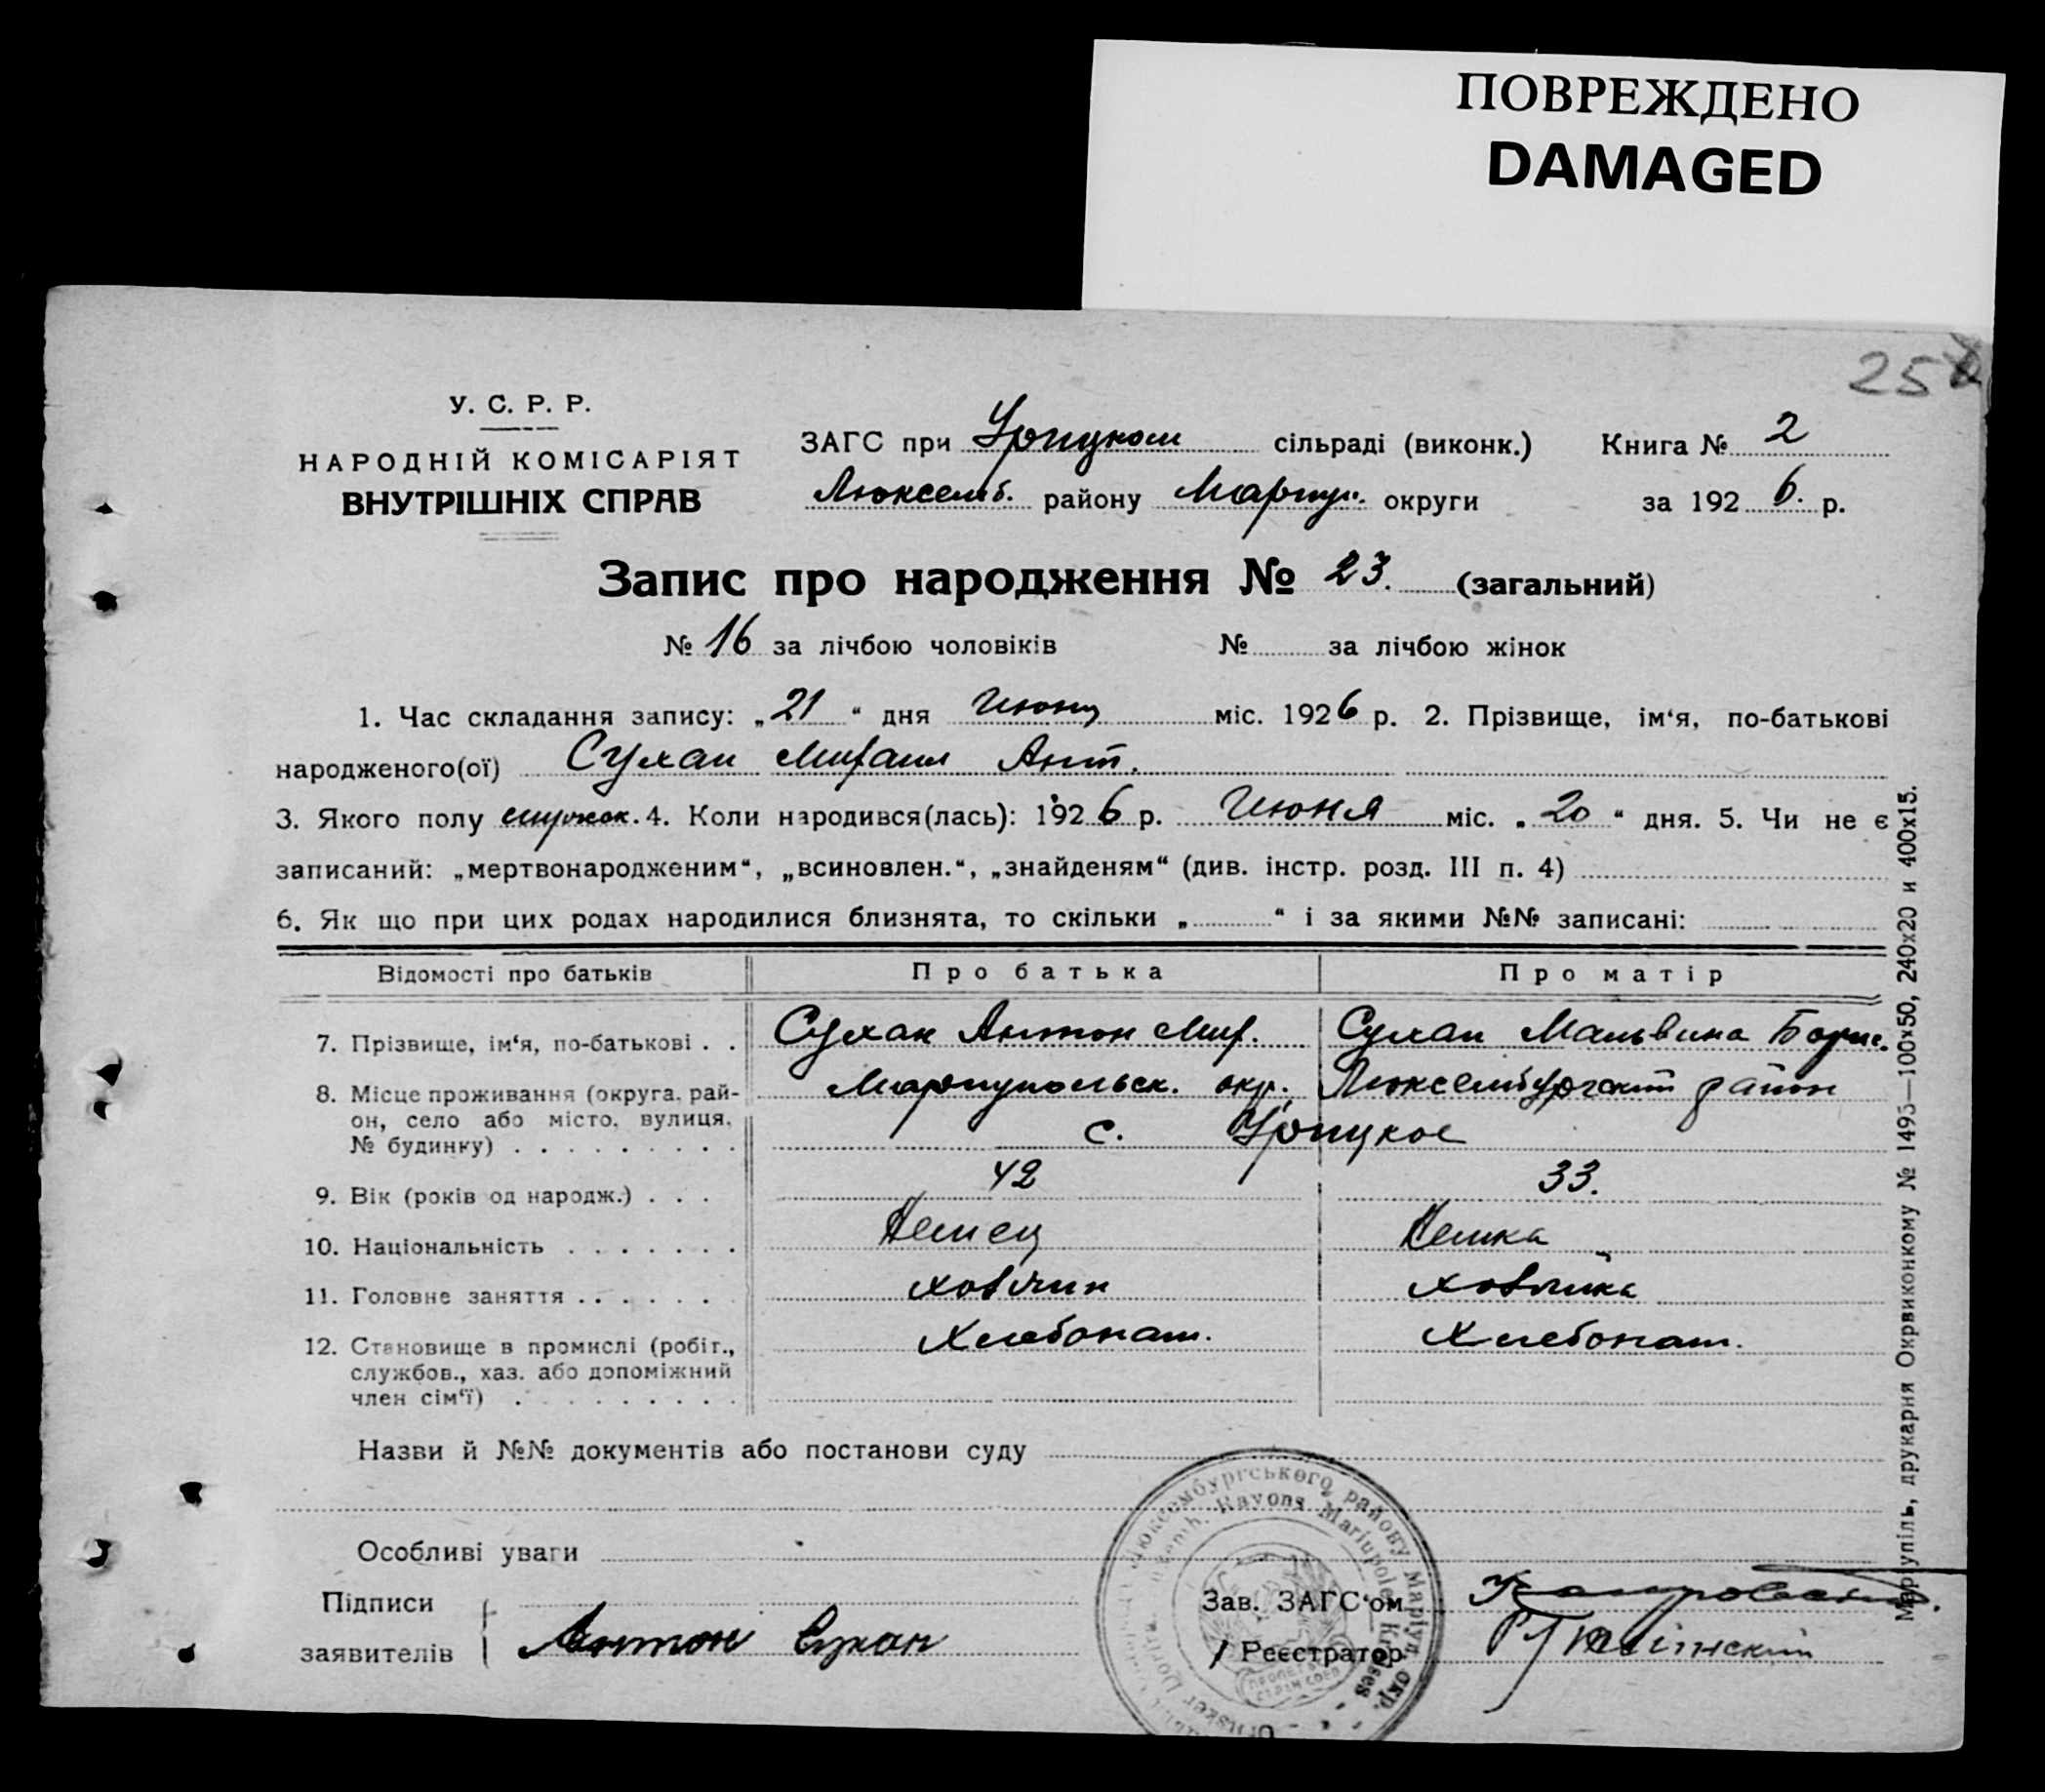 ПОВРЕЖДЕНО
DAMAGED
25
У. С. Р. Р.
НАРОДНІЙ КОМІСАРІЯТ
ВНУТРІШНІХ СПРАВ
ЗАГС при Урпуком сільраді (виконк.) Книга № 2
Люксемб. району Мариуп. округи за 1926. р.
Запис про народження № 23. (загальний)
№ 16 за лічбою чоловіків № за лічбою жінок
1. Час складання запису: „21“ дня Июня міс. 1926 р. 2. Прізвище, ім‘я, по-батькові
народженого(ої) Сухан Михаил Ант.
3. Якого полу мужск. 4. Коли народився(лась): 1926 р. Июня міс. „20“ дня. 5. Чи не є
записаний: „мертвонародженим“, „всиновлен.“, „знайденям“ (див. інстр. розд. III п. 4)
6. Як що при цих родах народилися близнята, то скільки „ “ і за якими №№ записані:
Відомості про батьків Про батька Про матір
7. Прізвище, ім‘я, по-батькові . . Сухан Антон Мих. Сухан Мальвина Борис.
8. Місце проживання (округа, рай- Мариупольск. окр. Люксембургский район
он, село або місто, вулиця, с.
№ будинку)
9. Вік (років од народж.) . . . 42 33.
10. Національність Немец Немка
11. Головне заняття
12. Становище в промислі (робіт., Хлебопаш. Хлебопаш.
службов., хаз. або допоміжний
член сім‘ї)
Назви й №№ документів або постанови суду
Особливі уваги
Підписи
заявителів Антон Сухан
Зав. ЗАГС‘ом
Реєстратор
Люксембургського району Маріуп. окр.
Rayons Mariupoler Kreises
Маріупіль, друкарня Окрвиконкому № 1495—100х50, 240х20 и 400х15.